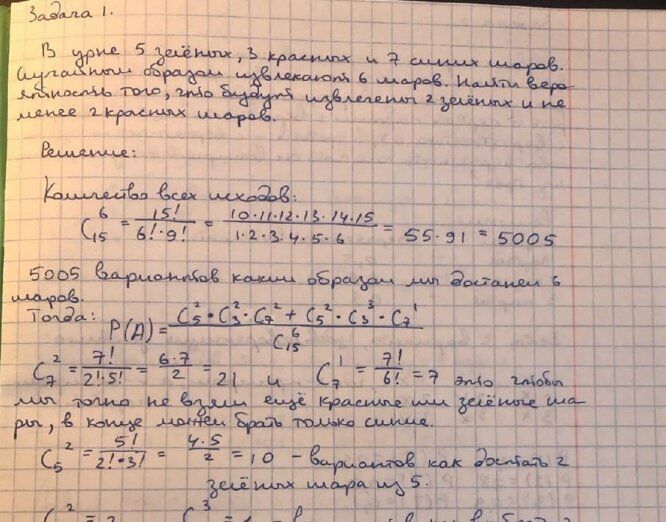 Задача 1.
В урне 5 зелёных, 3 красных и 7 синих шаров.
Случайным образом извлекают 6 шаров. Найти веро-
ятность того, что будут извлечены 2 зелёных и не
менее 2 красных шаров.
Решение:
Количество всех исходов:
C₁₅⁶ = 15!/(6!·9!) = (10·11·12·13·14·15)/(1·2·3·4·5·6) = 55·91 = 5005
5005 вариантов каким образом мы достанем 6
шаров.
Тогда:
P(A) = (C₅²·C₃²·C₇² + C₅²·C₃³·C₇¹)/C₁₅⁶
C₇² = 7!/(2!·5!) = (6·7)/2 = 21 и C₇¹ = 7!/6! = 7 это чтобы
мы точно не взяли ещё красные или зелёные ша-
ры, в конце можем брать только синие.
C₅² = 5!/(2!·3!) = (4·5)/2 = 10 – вариантов как достать 2
зелёных шара из 5.